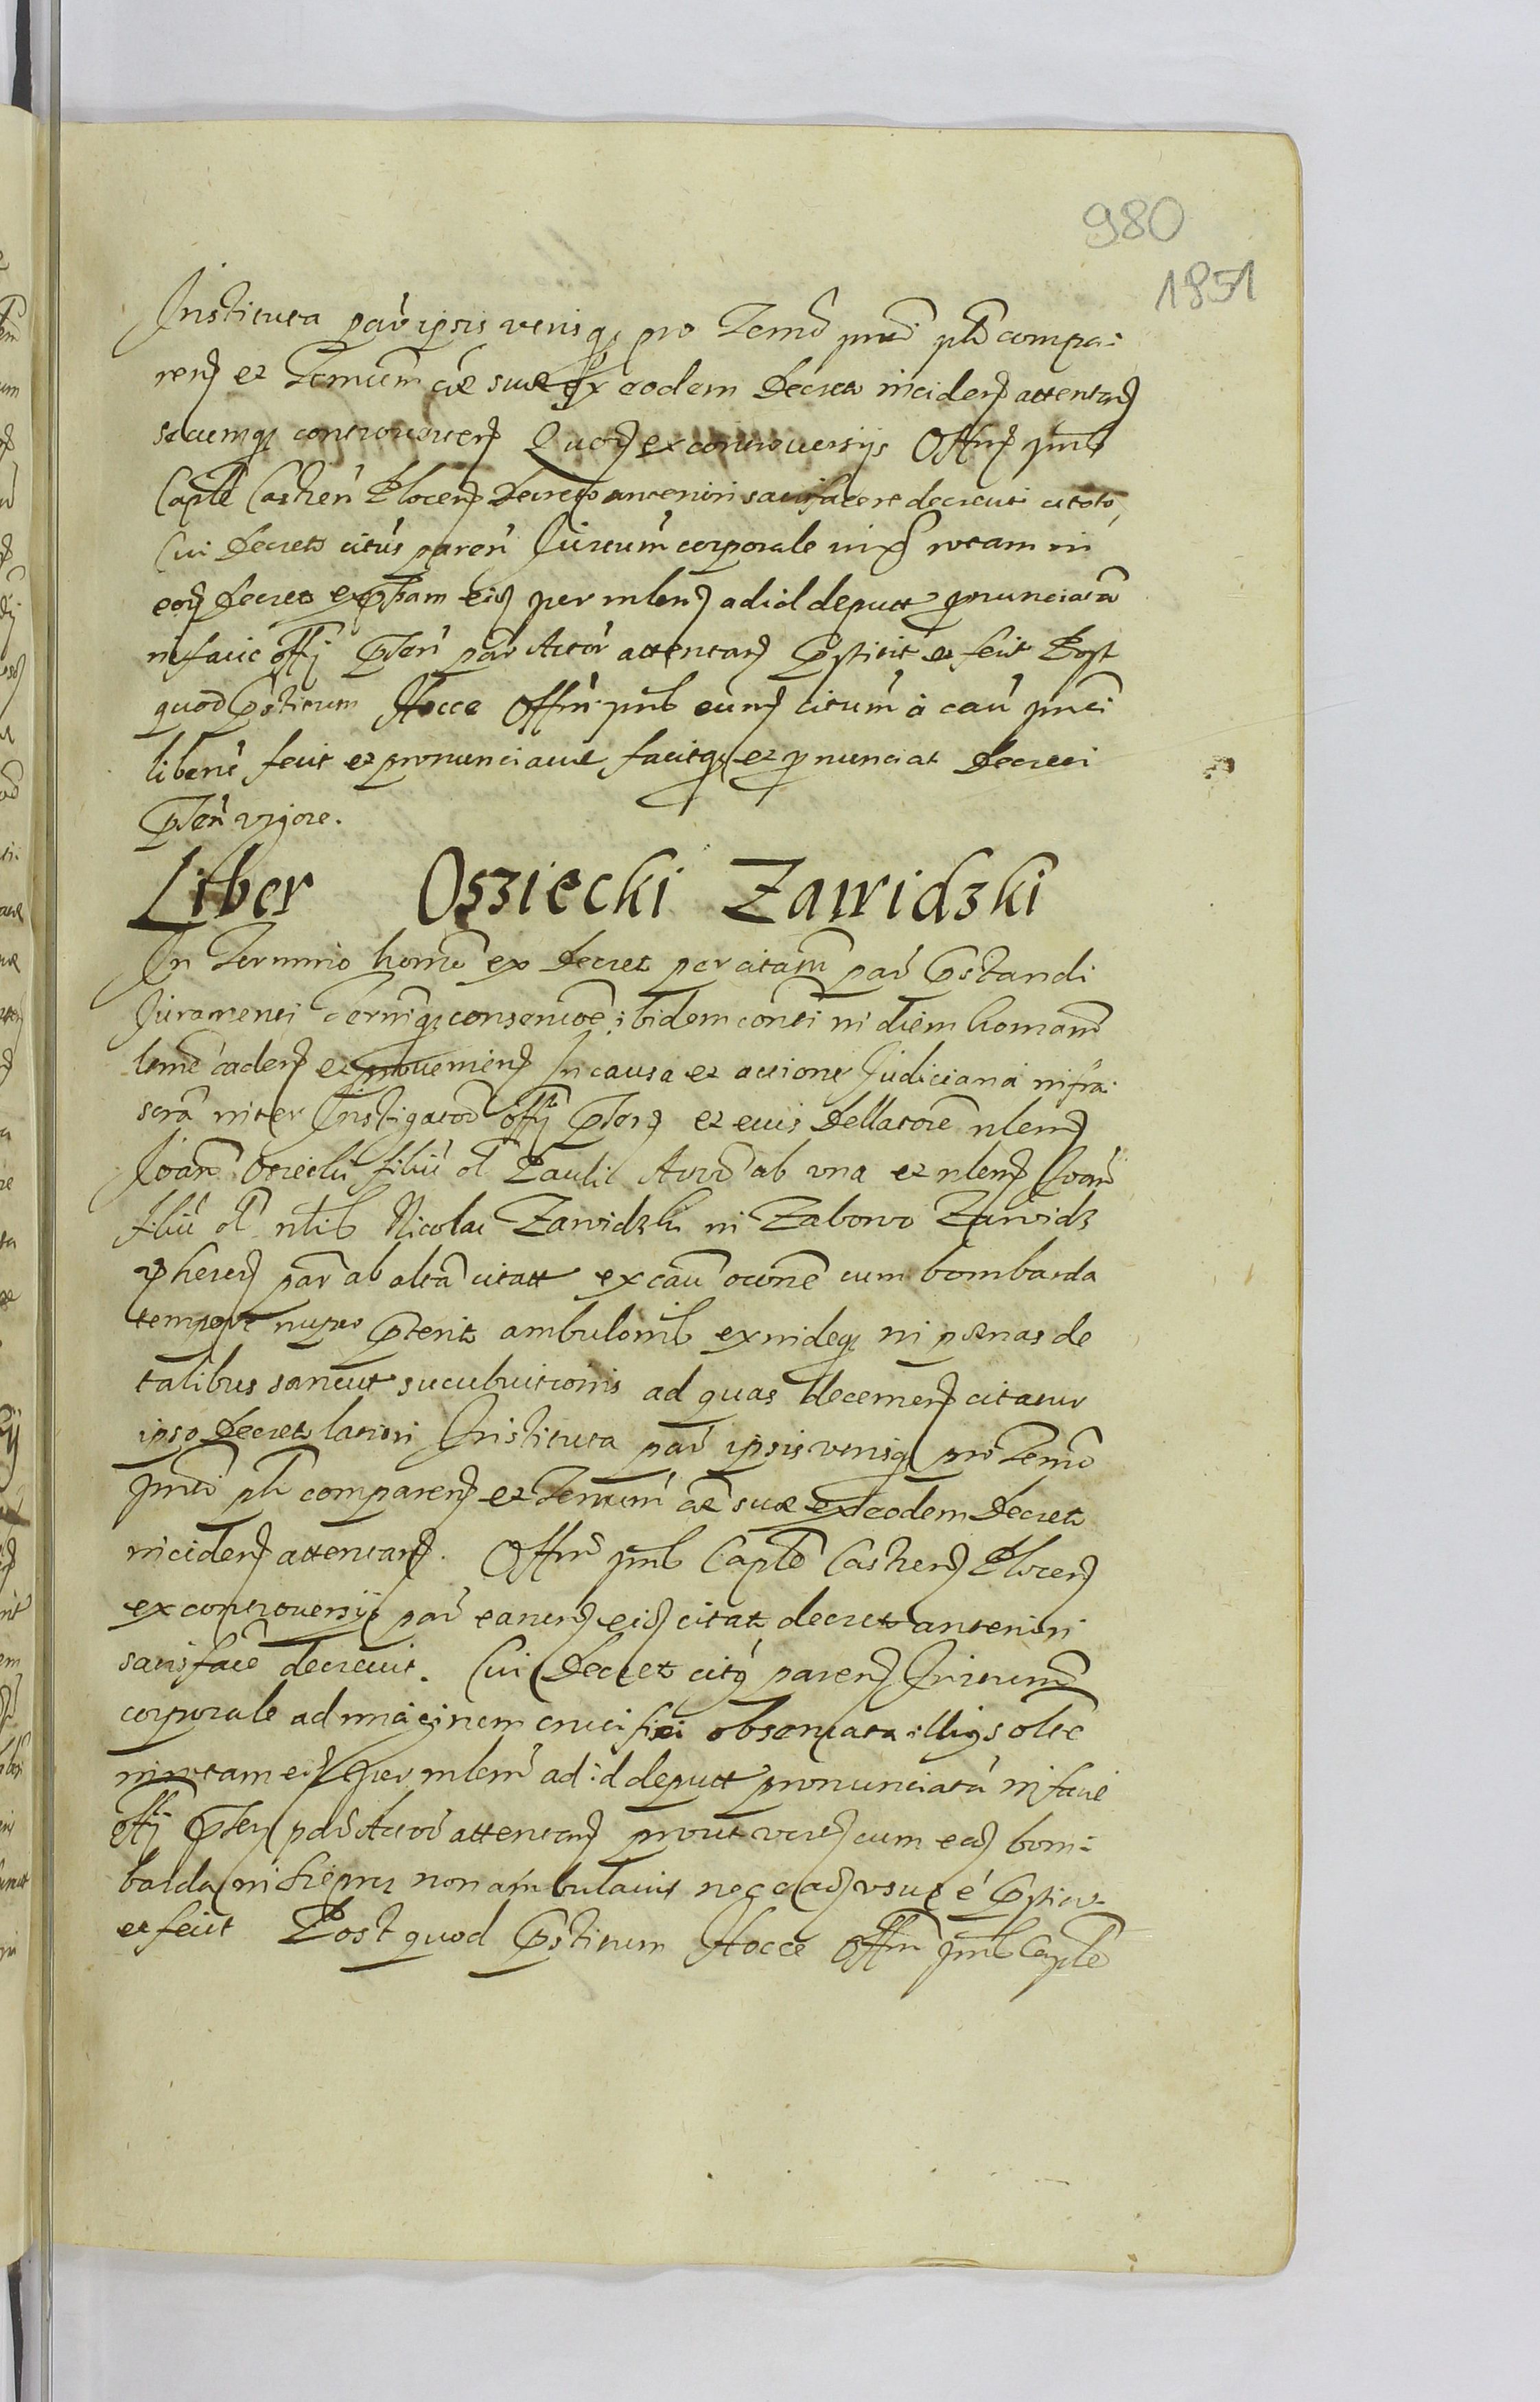 980
1851
Instituta par ipsis verisq pro Termo pnti pld compa:
ren et Terminum cae suae ex eodem Decreto inciden attentan
secumq controverten Quor ex controversiis Offm pns
Caple Castren Plocen Decreto anteriori satisfacere decrevit citato
Cui Decreto citus paren Juramentum corporale iux rotam in
eod Decreto expssam eid per mlem ad id deputt pronunciatam
in facie offi pten par Actor attentan pstitit et fecit Post
quod pstitum Hocce Offm pns eund citum a cau pnti
liberum fecit et pronunciavit facitq et pnunciat Decreti
pten vigore.
Liber Ossiecki Zawidzki
In Termino hodie ex Decret per citatam par pstandi
Juramenti Terminiq conservoe ibidem conti in diem hodiernam
lime caden et provenien In causa et actione Judiciaria infra
scra inter Instigatorem offi pten et eius Dellatorem nlem
Joan Osiecki filiu ol Pauli Actor ab una et nlem Joan
filiu ol nlis Nicolai Zawidzki in Zabowo Zawidz
heren par ab altera citatt ex cau occone cum bombarda
tempore nupro pterito ambulonis exindeq in poenas de
talibus sancut sucubuitionis ad quas decernen citatur
ipso Decreto latiori Instituta par ipsis verisq pro Termo
pnti pld comparen et Terminum cae suae ex eodem Decreto
inciden attentan. Offm pns Caple Castren Plocen
ex controversiis par earund eid citato decreto anteriori
satisface decrevit. Cui Decreto citus paren Juramentum
corporale ad imaginem crucifixi observata illius solte
in rotam eid per mlem ad id deputt pronunciata in facie
offi pten par Actor attentan prout veren cum ead bom:
barda in non ambulavit nec ead usus e pstitit
et fecit Post quod pstitum Hocce Offm pns Caple